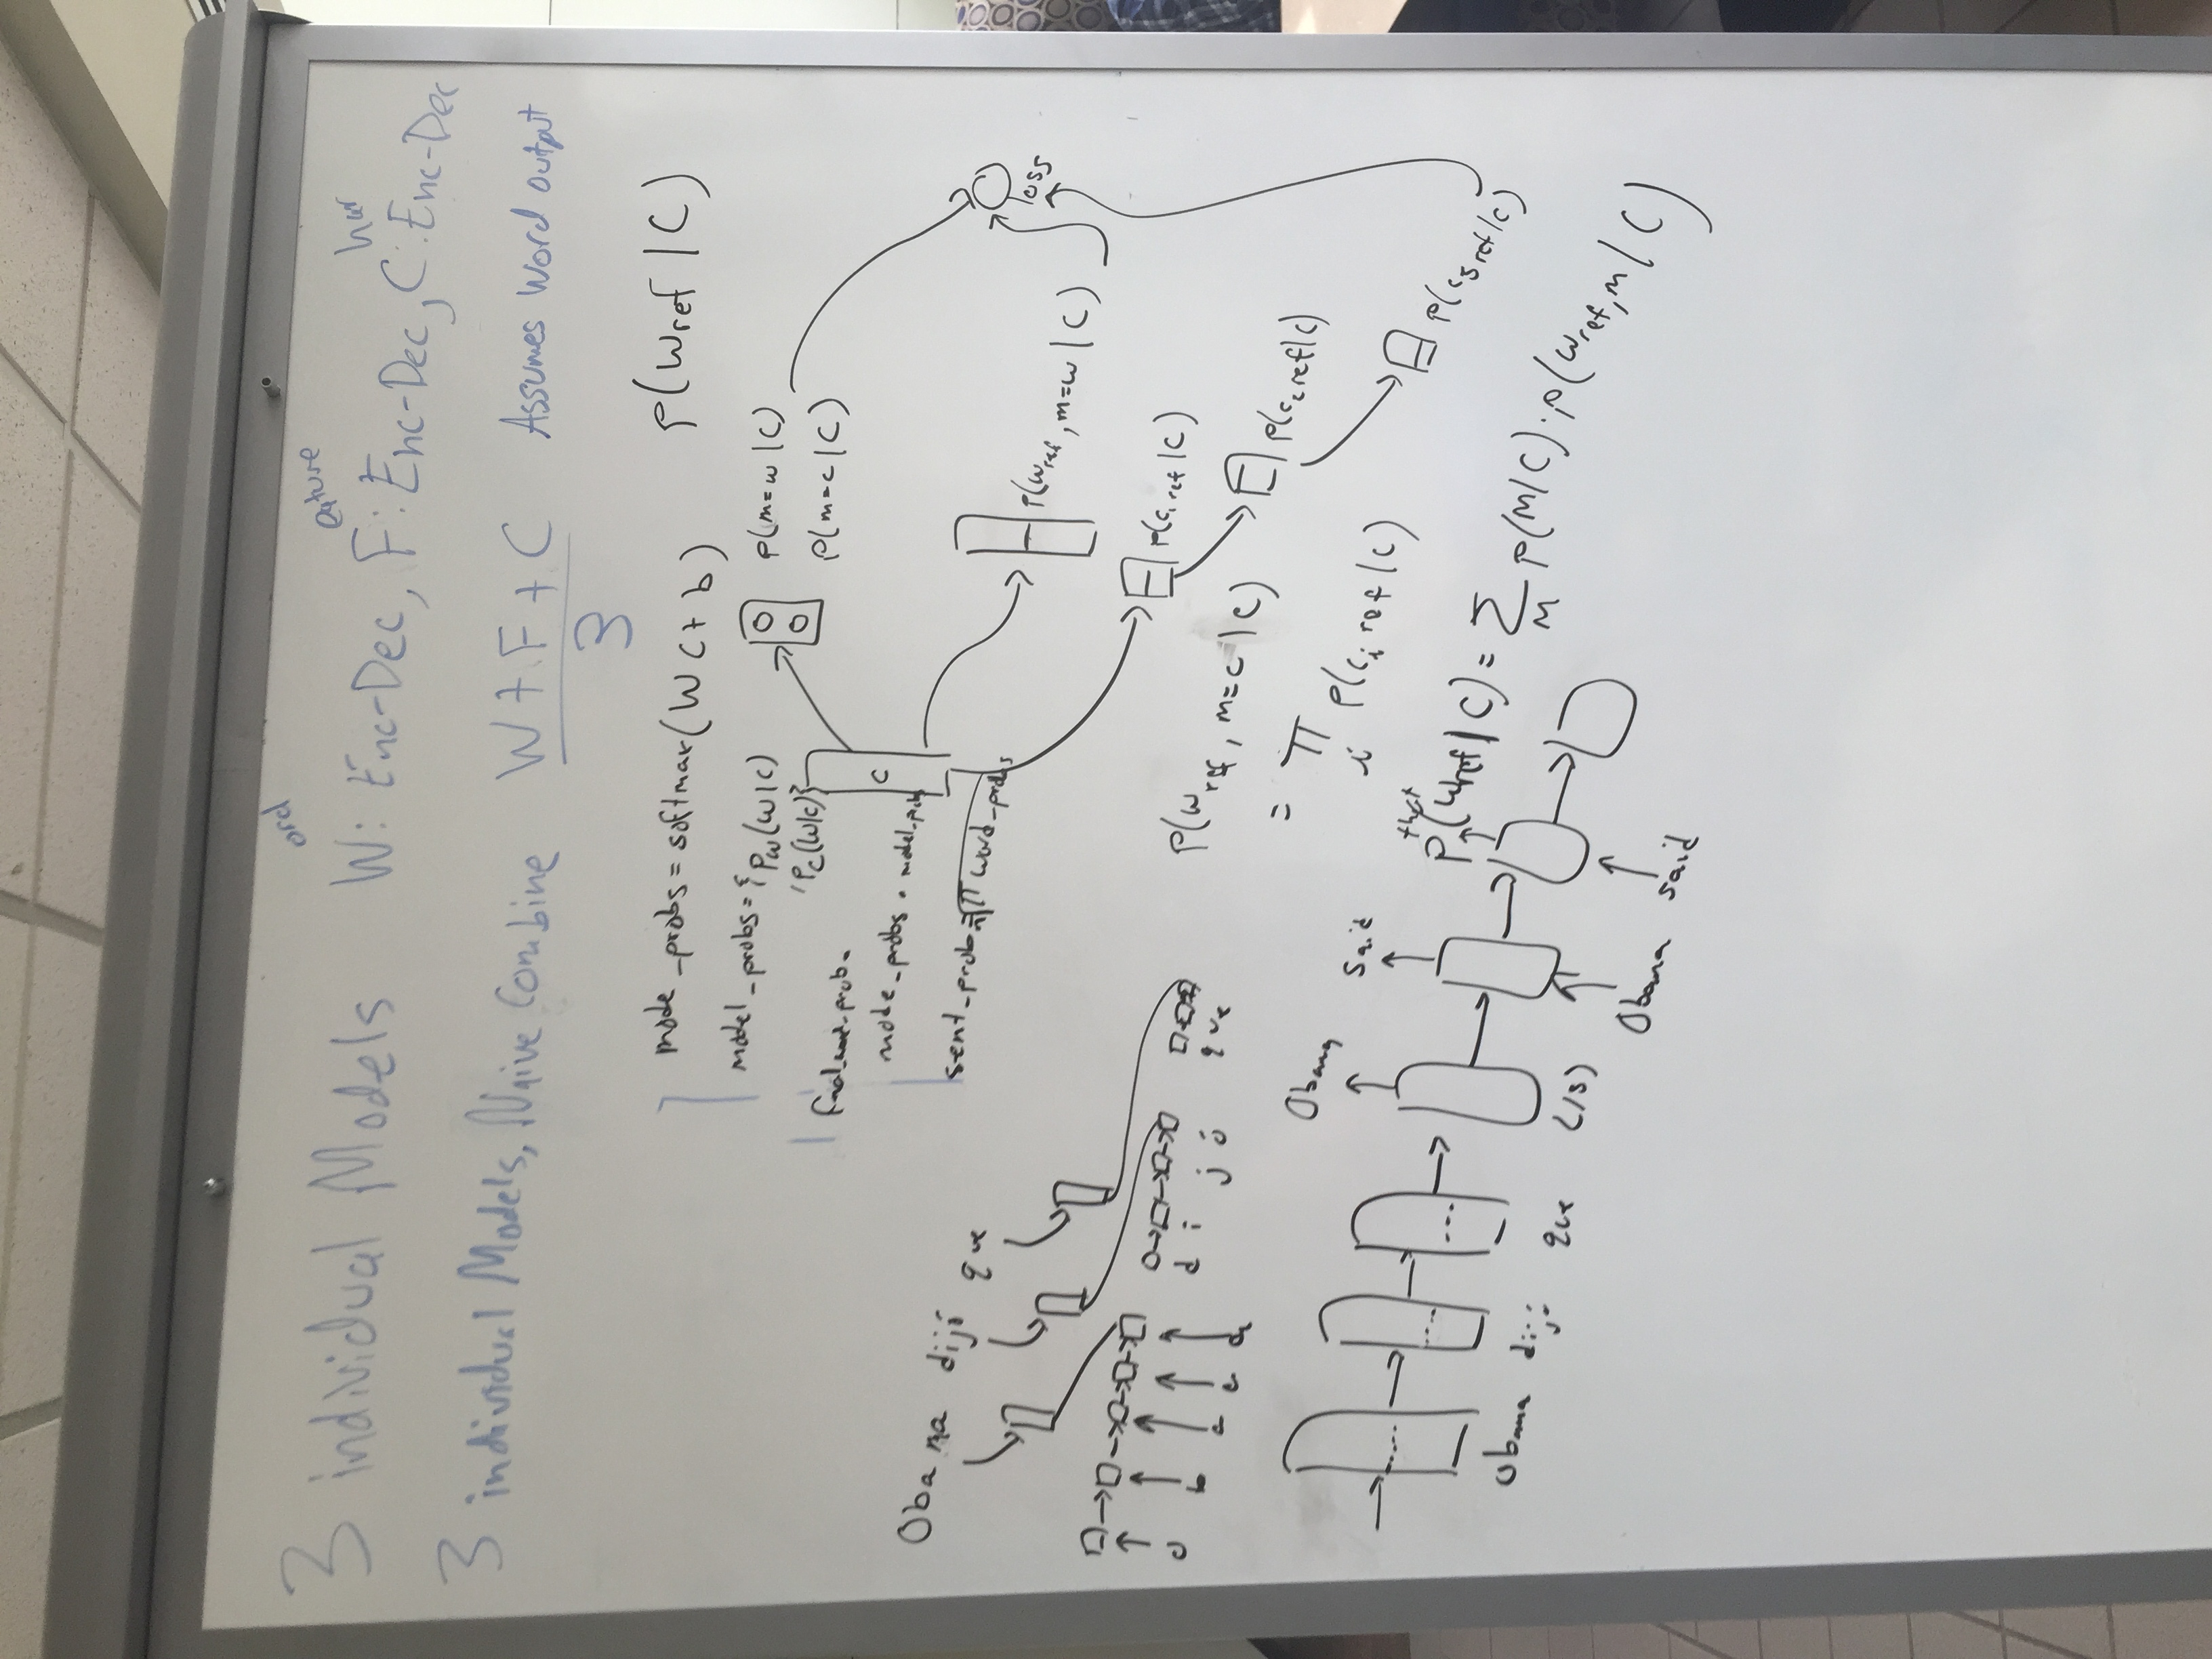 3 individual Models W:ord Enc-Dec, F:eature Enc-Dec, C:har Enc-Dec
3 individual Models, Naive Combine W + F + C / 3 Assumes Word output
mode_probs = softmax(W C + b)
p(w_ref | C)
model_probs = { P_w(w|c)
, P_c(w|c) }
final_word_prob =
mode_probs · model_probs
sent_prob = ∏ word_probs
C
p(m=w | C)
p(m=c | C)
p(w_ref, m=w | C)
loss
p(c_1 ref | C)
p(c_2 ref | C)
p(c_5 ref | C)
p(w_ref, m=c | C)
= ∏_i p(c_i ref | C)
p(w_ref | C) = Σ_M p(M|C) · p(w_ref, M | C)
Obama dijó que
o b a m a d i j ó que
Obama said that
Obama dijó que (/s)
Obama said